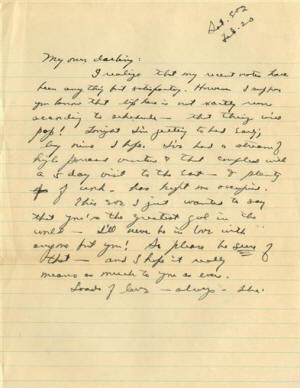 Sat. 8:02
Feb. 20
My own darling:
I realize that my recent notes have
been anything but satisfactory. However I suppose
you know that life here is not exactly run
according to schedule — that things will
pop! Tonight I'm getting to bed early,
by nine I hope. I've had a stream of
high pressure & that coupled with
a 5 day visit to the — & plenty
of work — has kept me occupied.
This eve I just wanted to say
that you're the greatest gal in the
world — I'll never be in love with
anyone but you! So please be sure of
that — and I hope it really
means as much to you as ever.
Loads of love — always —